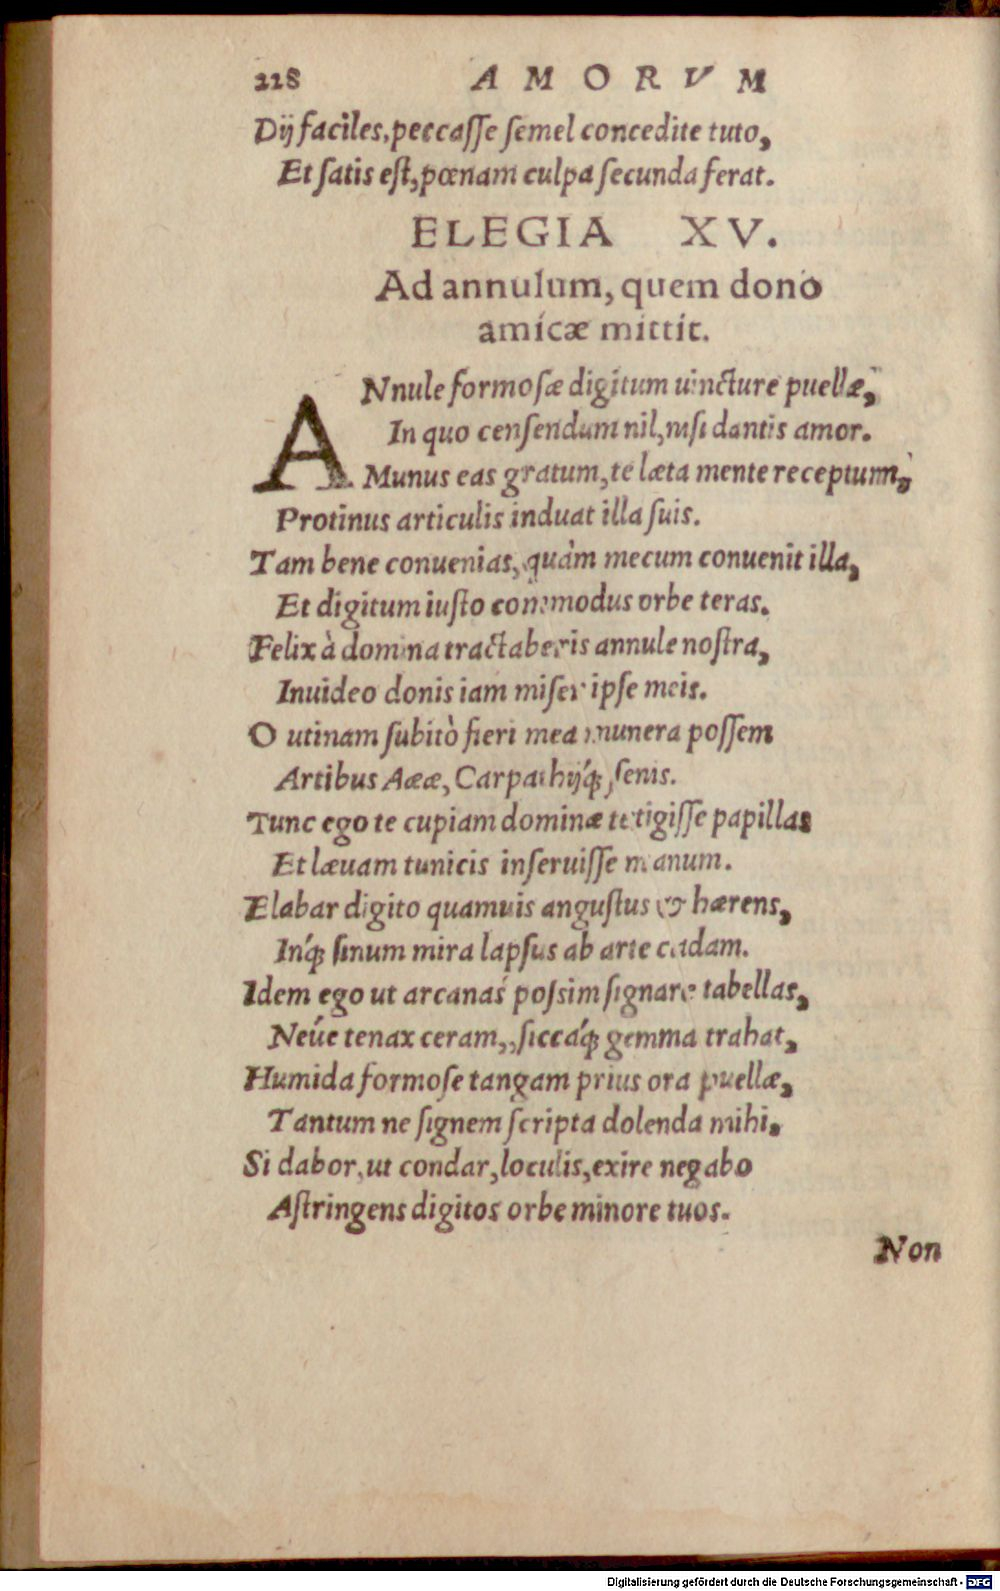 228 AMORVM
Dij faciles, peccaſſe ſemel concedite tuto,
Et ſatis eſt, pœnam culpa ſecunda ferat.
ELEGIA XV.
Ad annulum, quem dono
amicæ mittit.
ANnule formoſæ digitum uincture puellæ,
In quo cenſendum nil, niſi dantis amor.
Munus eas gratum, te læta mente receptum,
Protinus articulis induat illa ſuis.
Tam bene conuenias, quàm mecum conuenit illa,
Et digitum iuſto commodus orbe teras.
Felix à domina tractaberis annule noſtra,
Inuideo donis iam miſer ipſe meis.
O utinam ſubitò fieri mea munera poſſem
Artibus Aææ, Carpathijq́ꝫ ſenis.
Tunc ego te cupiam dominæ tetigiſſe papillas
Et læuam tunicis inſeruiſſe manum.
Elabar digito quamuis anguſtus & hærens,
Inq́ꝫ ſinum mira lapſus ab arte cadam.
Idem ego ut arcanas poſsim ſignare tabellas,
Neúe tenax ceram,, ſiccáq́ꝫ gemma trahat,
Humida formoſe tangam prius ora puellæ,
Tantum ne ſignem ſcripta dolenda mihi.
Si dabor, ut condar, loculis, exire negabo
Aſtringens digitos orbe minore tuos.
Non
Digitalisierung gefördert durch die Deutsche Forschungsgemeinschaft - DFG